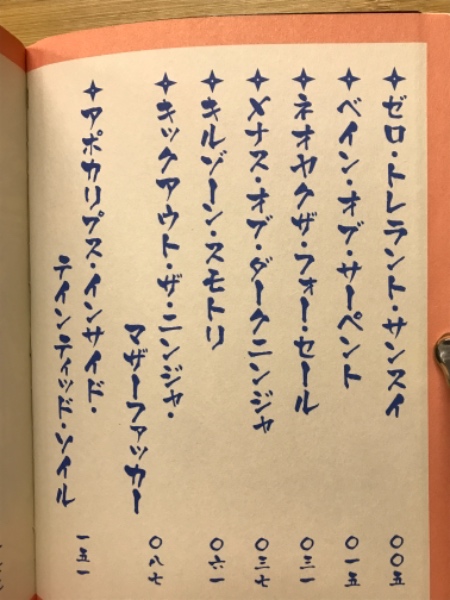 ゼロ・トレラント・サンスイ 〇〇五
ベイン・オブ・サーペント 〇一五
ネオヤクザ・フォー・セール 〇三一
メナス・オブ・ダークニンジャ 〇三七
キルゾーン・スモトリ 〇六一
キックアウト・ザ・ニンジャ・
マザーファッカー 〇八七
アポカリプス・インサイド・
テインティッド・ソイル 一五一